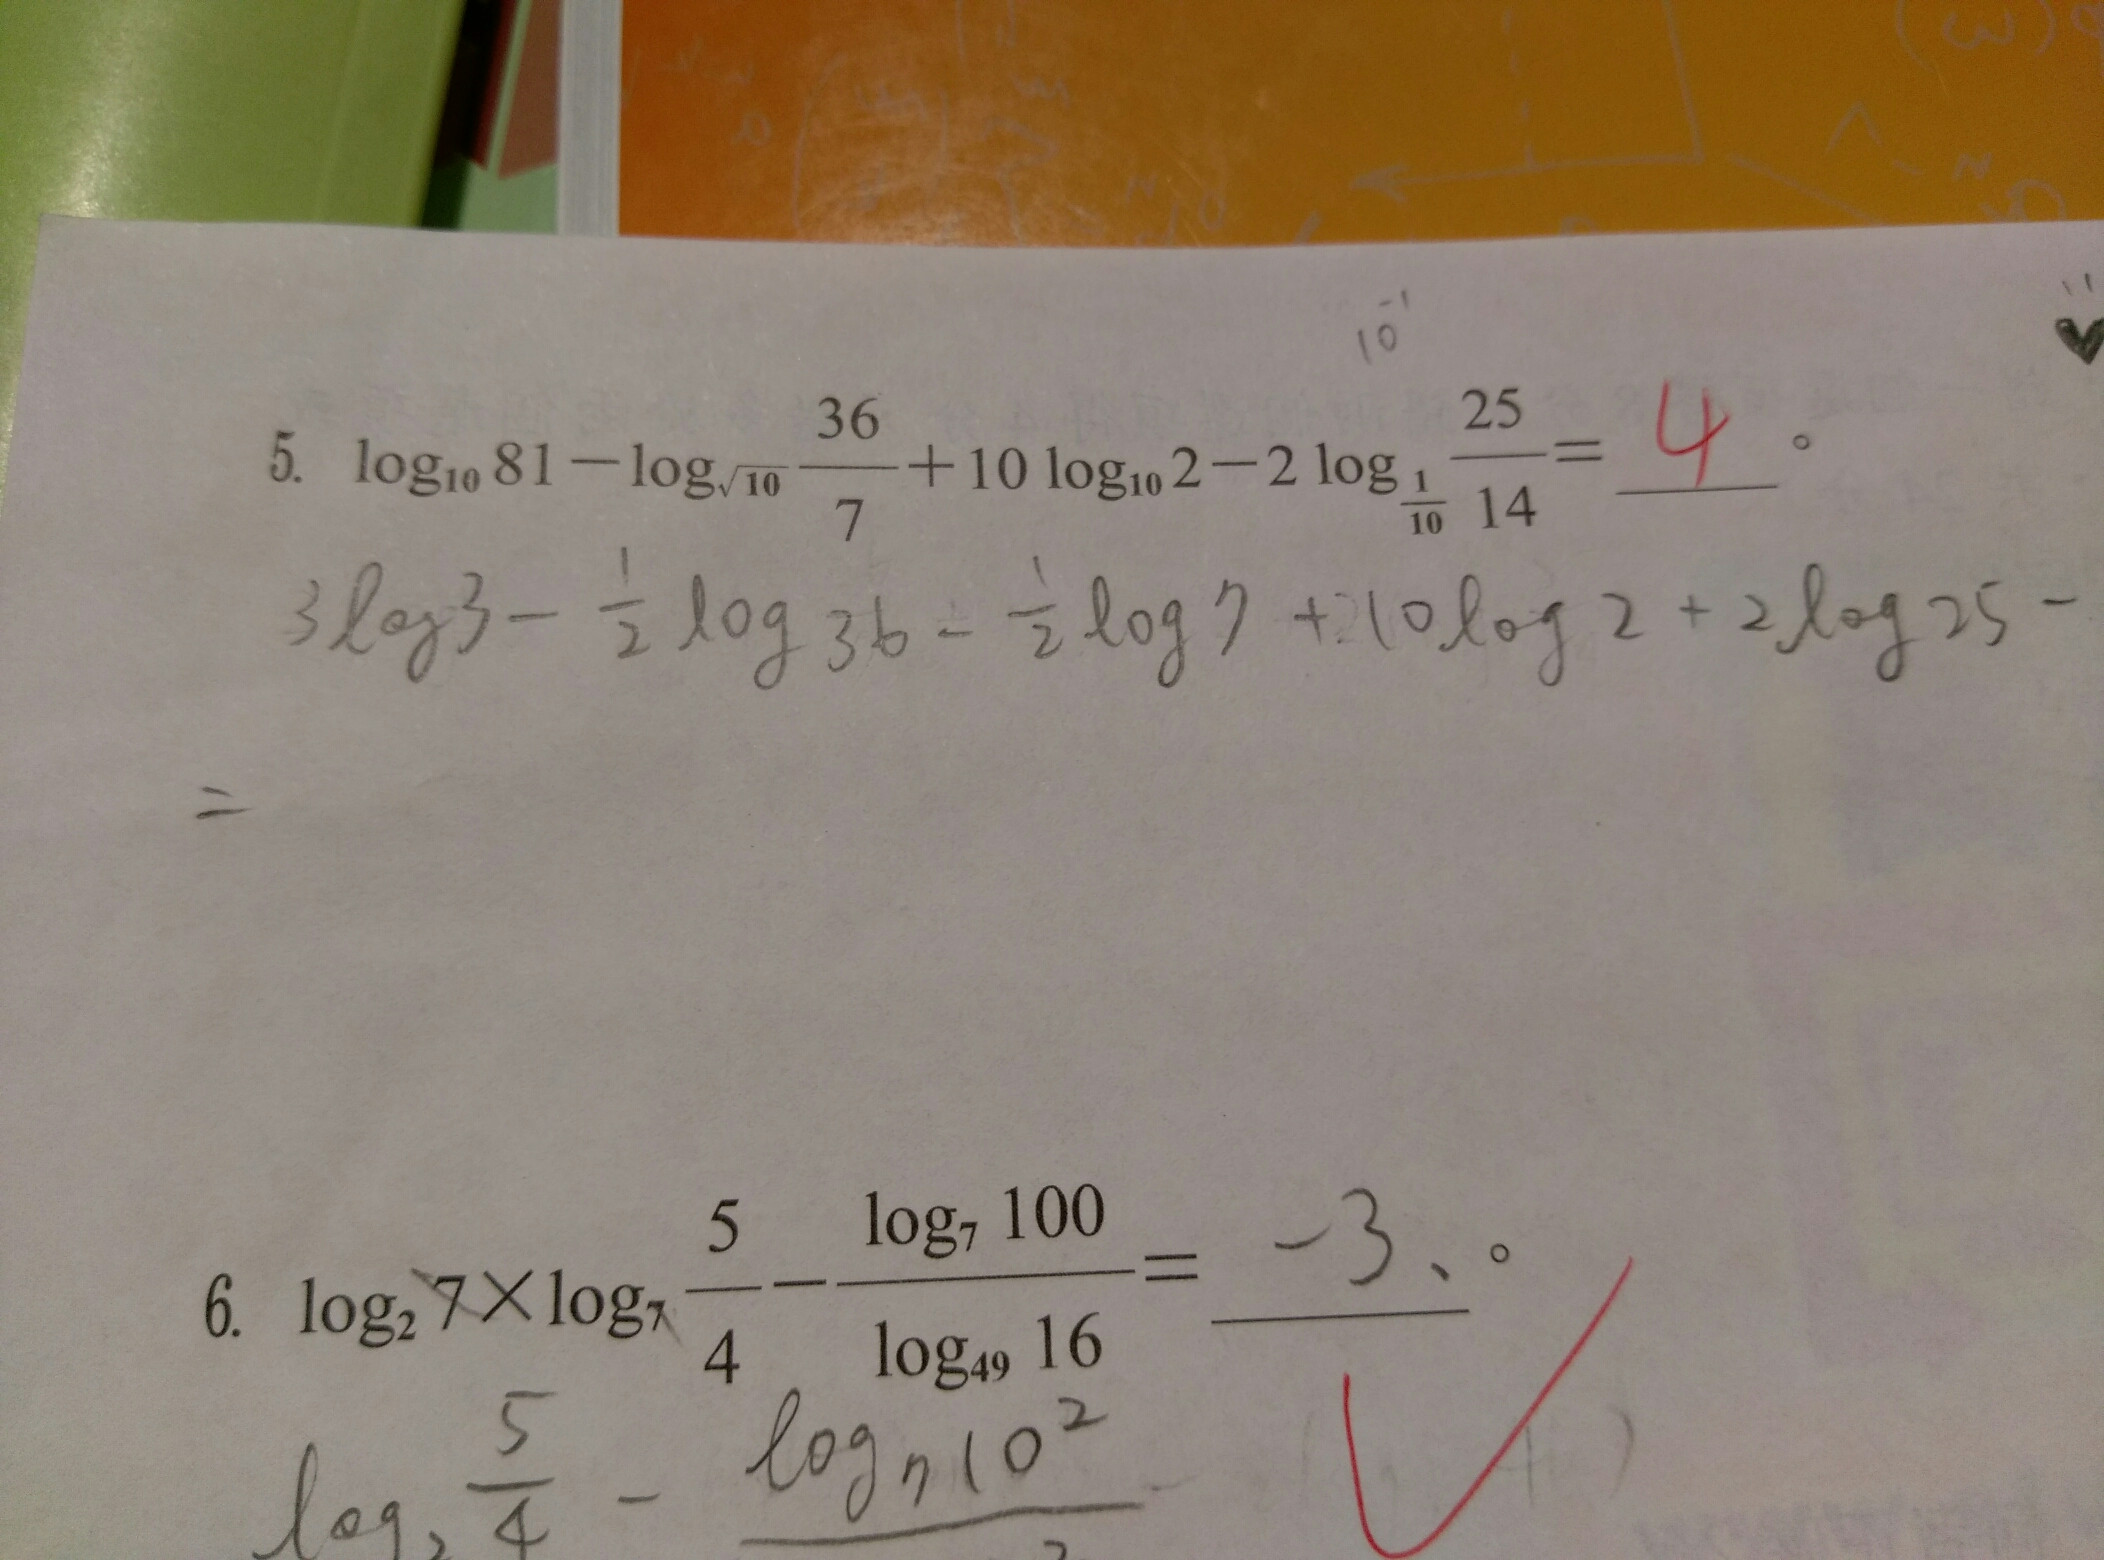 10⁻¹
5. log₁₀ 81 − log_√10 36/7 + 10 log₁₀ 2 − 2 log_1/10 25/14 = 4 。
3log3 − 1/2 log 36 − 1/2 log 7 + 10log 2 + 2log 25 −
=
6. log₂ 7 × log₇ 5/4 − log₇ 100 / log₄₉ 16 = −3 、。
log₂ 5/4 − log₇ 10²